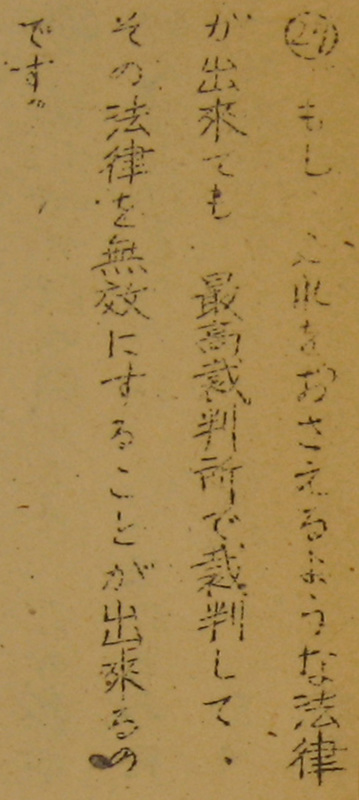 ㉙もし、之れをおさえるような法律
が出来ても 最高裁判所で裁判して、
その法律を無效にすることが出来るの
です。